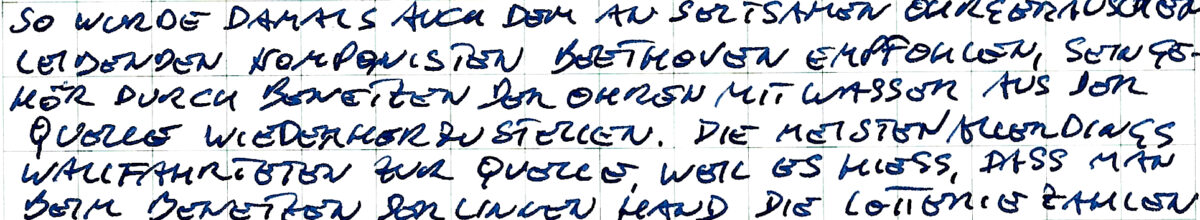 SO WURDE DAMALS AUCH DEM AN SELTSAMEN OHRGERÄUSCHEN
LEIDENDEN KOMPONISTEN BEETHOVEN EMPFOHLEN, SEIN GE-
HÖR DURCH BENETZEN DER OHREN MIT WASSER AUS DER
QUELLE WIEDERHERZUSTELLEN. DIE MEISTEN ALLERDINGS
WALLFAHRTETEN ZUR QUELLE, WEIL ES HIESS, DASS MAN
BEIM BENETZEN DER LINKEN HAND DIE LOTTERIEZAHLEN